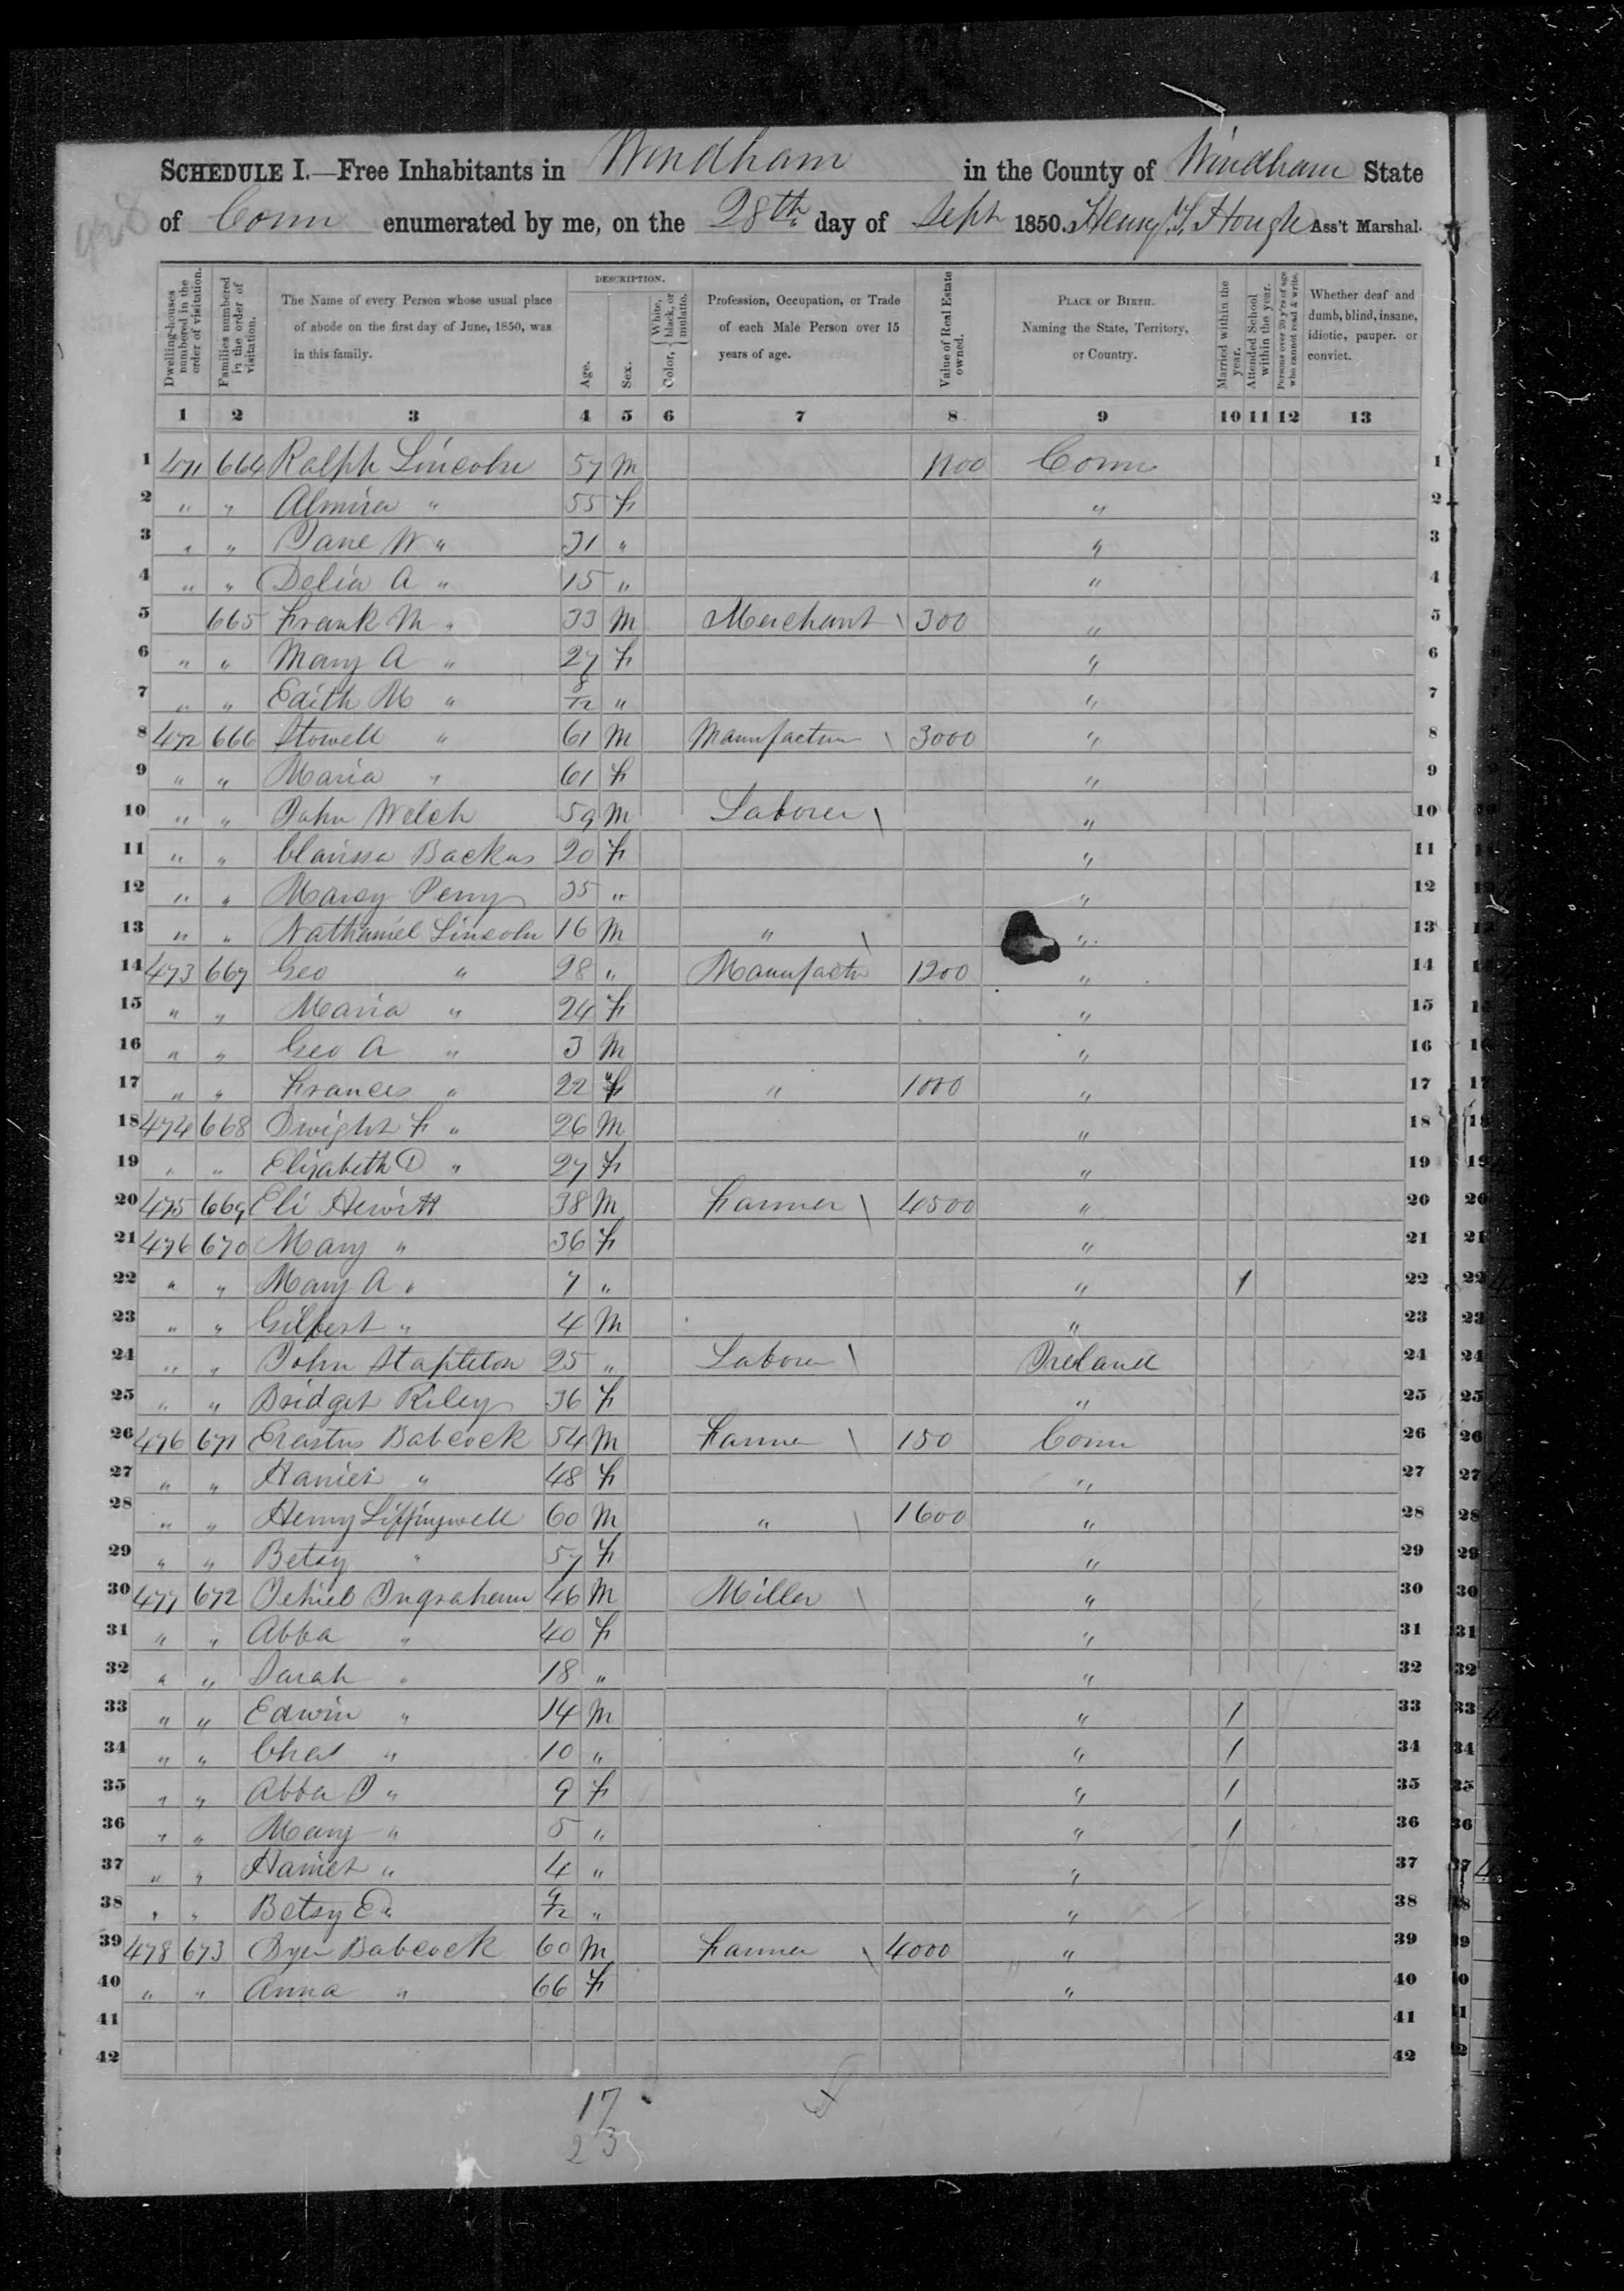 SCHEDULE I.—Free Inhabitants in Windham in the County of Windham State
of Conn enumerated by me, on the 28th day of Sept 1850. Henry T. Hough Ass't Marshal.
Dwelling-houses numbered in the order of visitation.
Families numbered in the order of visitation.
The Name of every Person whose usual place of abode on the first day of June, 1850, was in this family.
DESCRIPTION.
Age.
Sex.
Color, { White, black, or mulatto.
Profession, Occupation, or Trade of each Male Person over 15 years of age.
Value of Real Estate owned.
PLACE OF BIRTH. Naming the State, Territory, or Country.
Married within the year.
Attended School within the year.
Persons over 20 y'rs of age who cannot read & write.
Whether deaf and dumb, blind, insane, idiotic, pauper. or convict.
1 2 3 4 5 6 7 8 9 10 11 12 13
1 471 664 Ralph Lincoln 57 M 1100 Conn 1
2 " " Almira " 55 F " 2
3 " " Jane W " 31 " " 3
4 " " Delia A " 15 " " 4
5 665 Frank M " 33 M Merchant \ 300 " 5
6 " " Mary A " 27 F " 6
7 " " Edith M " 8/12 " " 7
8 472 666 Stowell " 61 M Manufacturer \ 3000 " 8
9 " " Maria " 61 F " 9
10 " " John Welch 59 M Laborer \ " 10
11 " " Clarissa Backus 20 F " 11
12 " " Marcy Perry 35 " " 12
13 " " Nathaniel Lincoln 16 M " \ " 13
14 473 667 Geo " 28 " Manufactr 1200 " 14
15 " " Maria " 24 F " 15
16 " " Geo A " 3 M " 16
17 " " Frances " 22 " 1000 " 17
18 474 668 Dwight F " 26 M " 18
19 " " Elizabeth D " 27 F " 19
20 475 669 Eli Hewitt 38 M Farmer \ 4500 " 20
21 476 670 Mary " 36 F " 21
22 " " Mary A " 7 " " 1 22
23 " " Gilbert " 4 M " 23
24 " " John Stapleton 25 " Laborer \ Ireland 24
25 " " Bridget Riley 36 F " 25
26 476 671 Erastus Babcock 54 M Farmer \ 150 Conn 26
27 " " Harriet " 48 F " 27
28 " " Henry Liffingwell 60 M " \ 1600 " 28
29 " " Betsy " 57 F " 29
30 477 672 Jehiel Ingraham 46 M Miller \ " 30
31 " " Abba " 40 F " 31
32 " " Sarah " 18 " " 32
33 " " Edwin " 14 M " 1 33
34 " " Chas " 10 " " 1 34
35 " " Abba J " 9 F " 1 35
36 " " Mary " 5 " " 1 36
37 " " Harriet " 4 " " 37
38 " " Betsy E " 9/12 " " 38
39 478 673 Babcock 60 M Farmer \ 4000 " 39
40 " " Anna " 66 F " 40
41 41
42 42
17
23